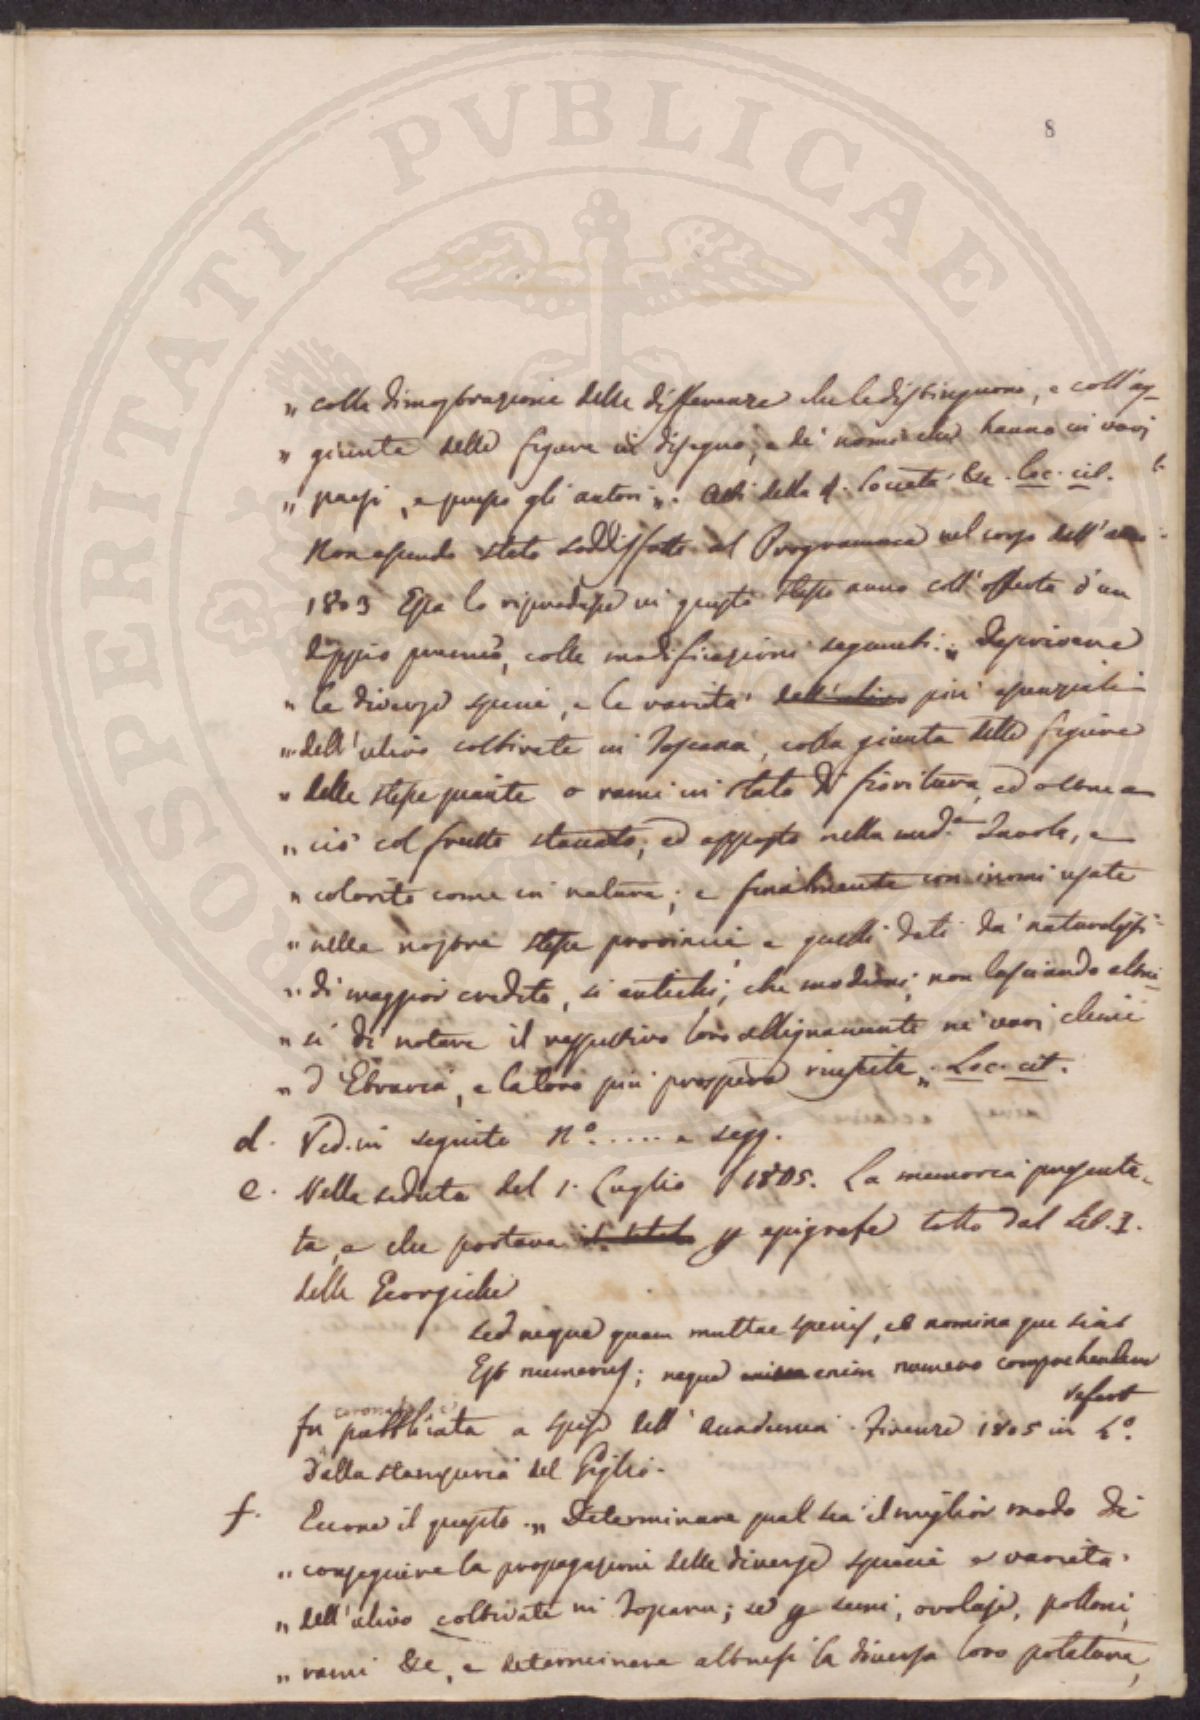 8
PROSPERITATI PVBLICAE
„ colla dimostrazione delle differenze che le distinguono, e coll'ag-
„ giunta delle figure in disegno, e de' nomi che hanno in varj
„ paesi, e presso gli autori „. Atti della d. Società &c. loc. cit.
Non essendo stato soddisfatto al Programma nel corso dell'anno
1803 Essa lo riprodusse in questo stesso anno coll'offerta d'un
doppio premio, colle modificazioni seguenti: „ Descrivere
„ le diverse specie, e le varietà dell'ulivo più essenziali
„ dell'ulivo coltivate in Toscana, colla giunta delle figure
„ delle stesse piante o rami in stato di fioritura, ed oltre a
„ ciò col frutto staccato, ed apposto nella med.a Tavola, e
„ colorito come in natura; e finalmente con i nomi usati
„ nelle nostre stesse provincie, e quelli dati da' naturalisti
„ di maggior credito, sì antichi, che moderni, non lasciando altre-
„ sì di notare il respettivo loro allignamento ne' varj climi
„ d'Etruria, e la loro più prospera riuscita „. Loc. cit.
d. Ved. in seguito N.o ..... e segg.
e. Nella seduta del 1. Luglio 1805. La memoria presenta-
ta, e che portava p epigrafe tolto dal Lib. I.
delle Georgiche
Sed neque quam multae species, et nomina que sint
Est numerus; neque enim numero comprehendere
refert
coronata e
fu pubblicata a spese dell'Accademia. Firenze 1805 in 4.o
dalla stamperia del Giglio.
f. Eccone il quesito. „ Determinare qual sia il miglior modo di
„ conseguire la propagazione delle diverse specie e varietà
„ dell'ulivo coltivate in Toscana; se p semi, ovolaje, polloni,
„ rami &c, e determinare altresì la diversa loro potatura,